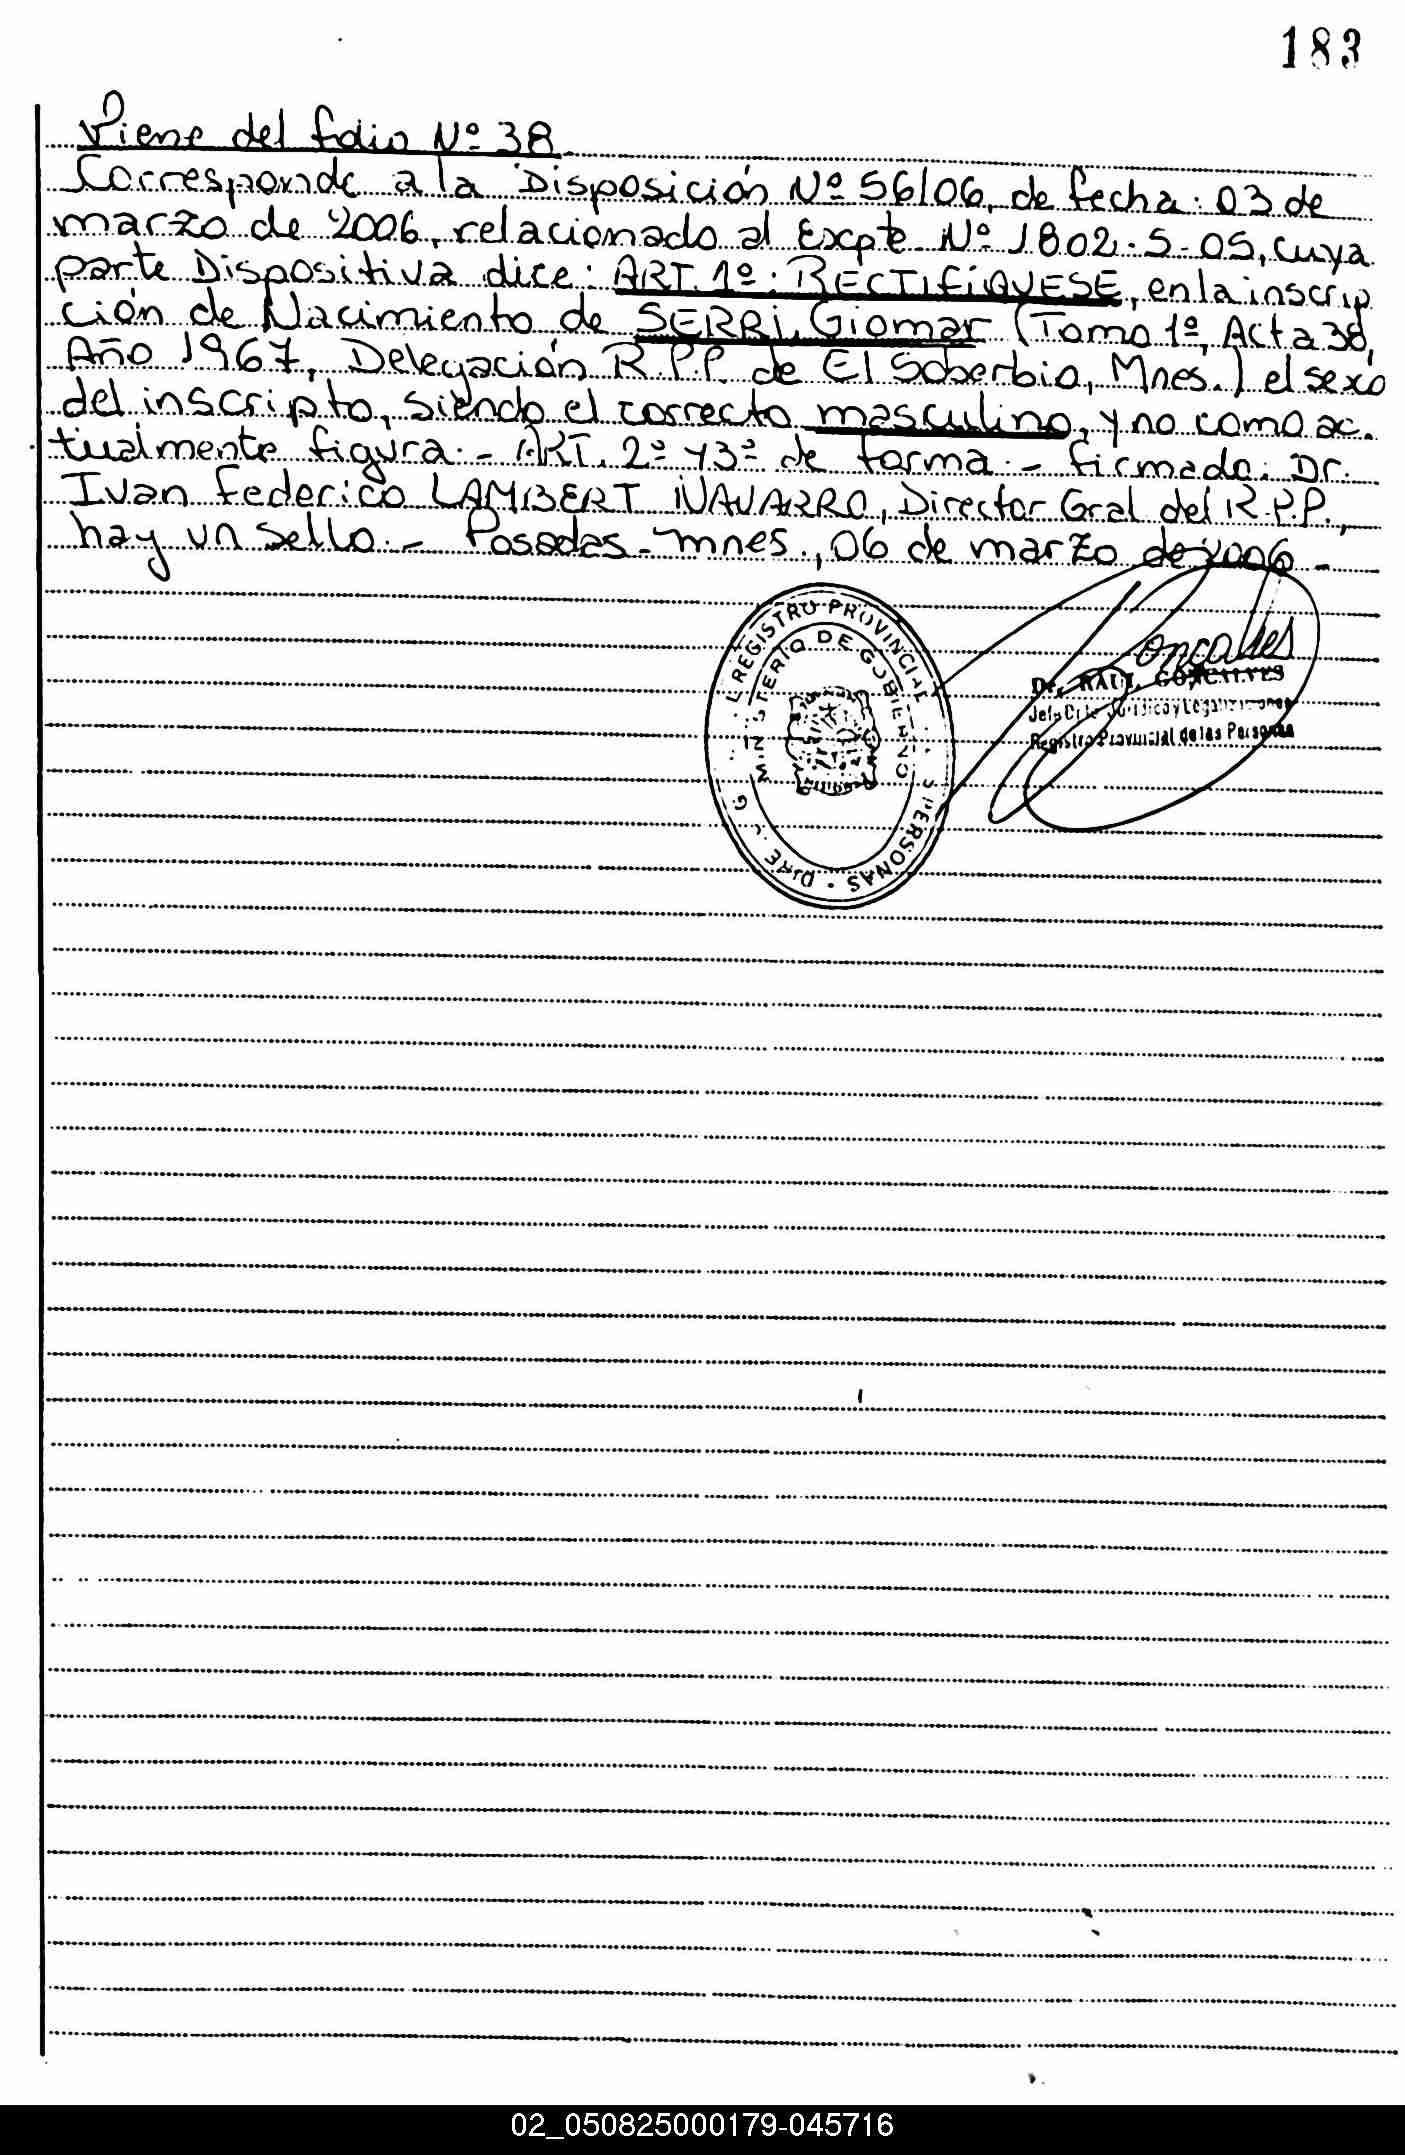 183
Viene del folio Nº 38
Corresponde a la Disposición Nº 56/06, de fecha: 03 de
marzo de 2006, relacionado al Expte Nº 1802-S-05, cuya
parte Dispositiva dice: ART. 1º: RECTIFÍQUESE, en la inscrip
ción de Nacimiento de SERRI, Giomar (Tomo 1º, Acta 38,
Año 1967, Delegación R.P.P. de El Soberbio, Mnes.) el sexo
del inscripto, siendo el correcto masculino, y no como ac.
tualmente figura.- ART. 2º y 3º de forma.- firmado: Dr.
Ivan Federico LAMBERT NAVARRO, Director Gral del R.P.P.,
hay un sello.- Posadas-Mnes., 06 de marzo de 2006-
REGISTRO PROVINCIAL PERSONAS
MINISTERIO DE GOBIERNO
Goncalves
Dr. RAUL GONCALVES
Jefe Dpto Jurídico y Legalizaciones
Registro Provincial de las Personas
02_050825000179-045716